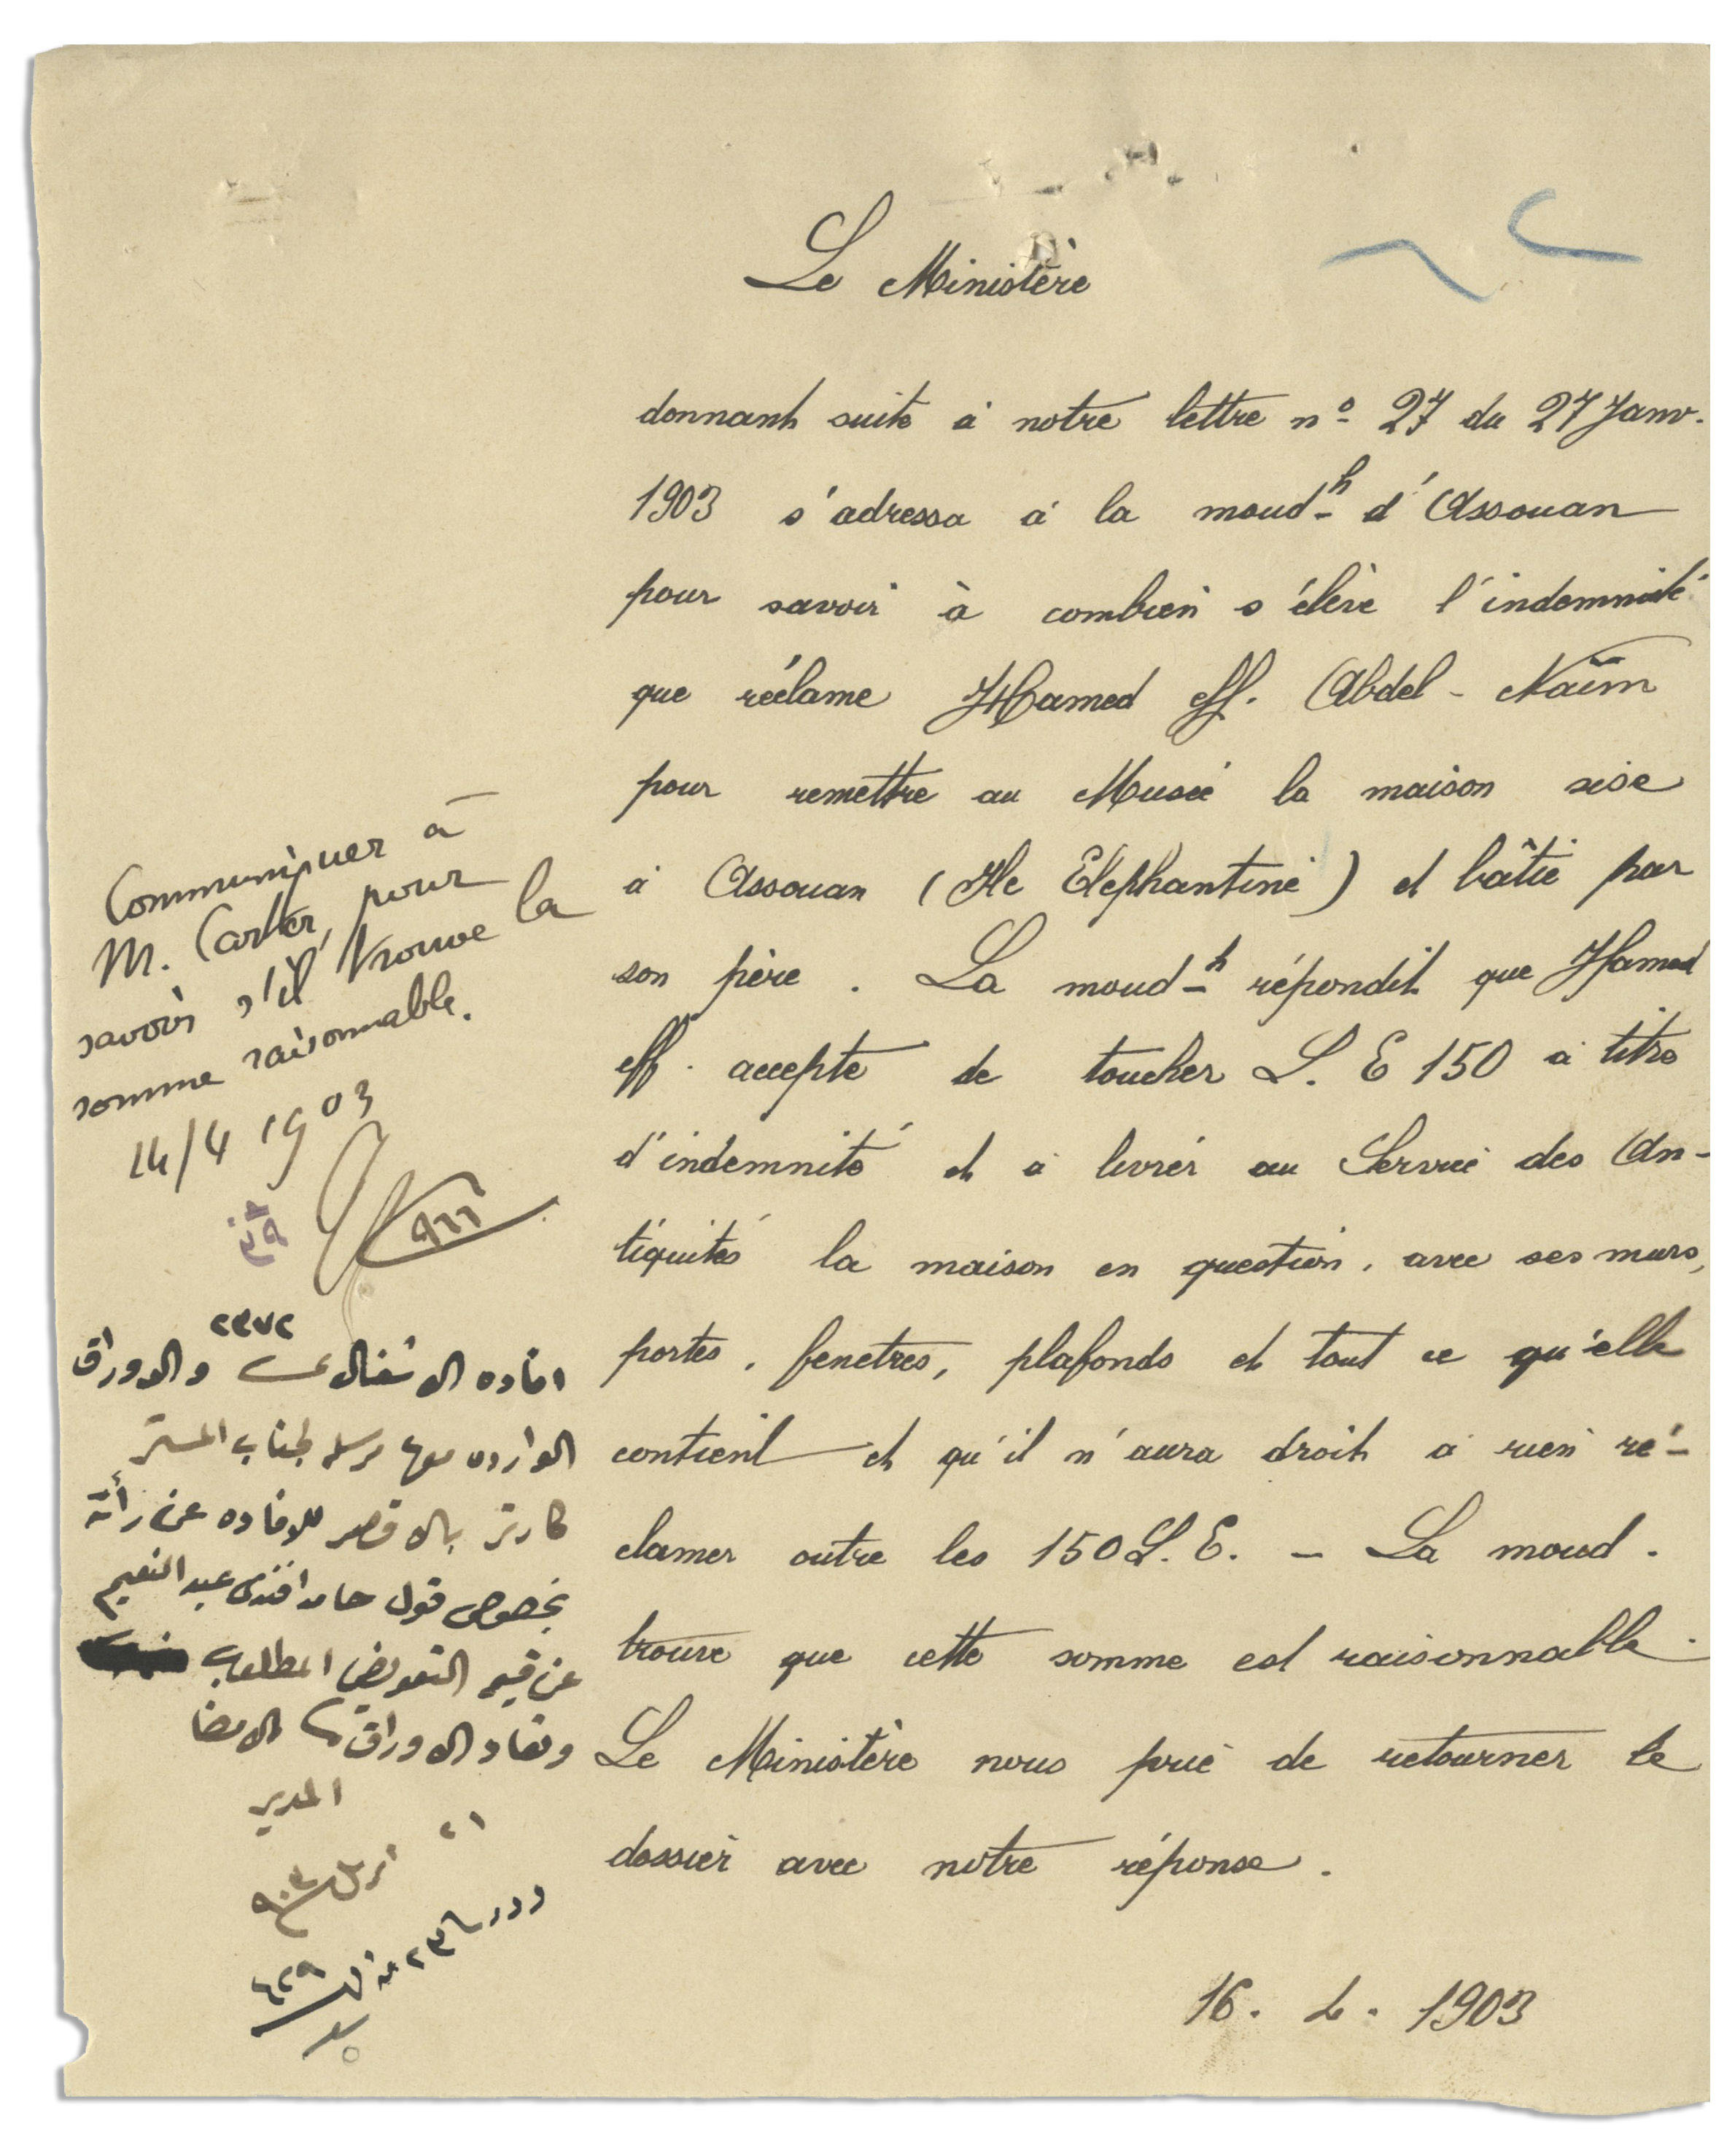 Le Ministère
donnant suite à notre lettre nº 27 du 27 Janv.
1903 s'adressa à la moudh d'Assouan
pour savoir à combien s'élève l'indemnité
que réclame Hamed eff. Abdel-Naïm
pour remettre au Musée la maison sise
à Assouan (Ile Elephantine) et bâtie par
son père. La moudh répondit que Hamed
eff. accepte de toucher L. E 150 à titre
d'indemnité et à livrer au Service des An-
tiquités la maison en question, avec ses murs,
portes, fenetres, plafonds et tout ce qu'elle
contient et qu'il n'aura droit à rien ré-
clamer outre les 150 L. E. - La moud.
trouve que cette somme est raisonnable.
Le Ministère nous prie de retourner le
dossier avec notre réponse.
16. 4. 1903
Communiquer à
M. Carter, pour
savoir s'il trouve la
somme raisonnable.
14/4 1903
٩٦٦
٢٣٧٢
افاده الاشغال والاوراق
الوارده معها مرسله لجناب المستر
كارتر بالاقصر للافاده عن رأيه
بخصوص قول حامد افندى عبد النعيم
عن قيمة التعويض المطلوب
وتعاد الاوراق الامضا
المدير
٢١
ابريل ٩٠٣